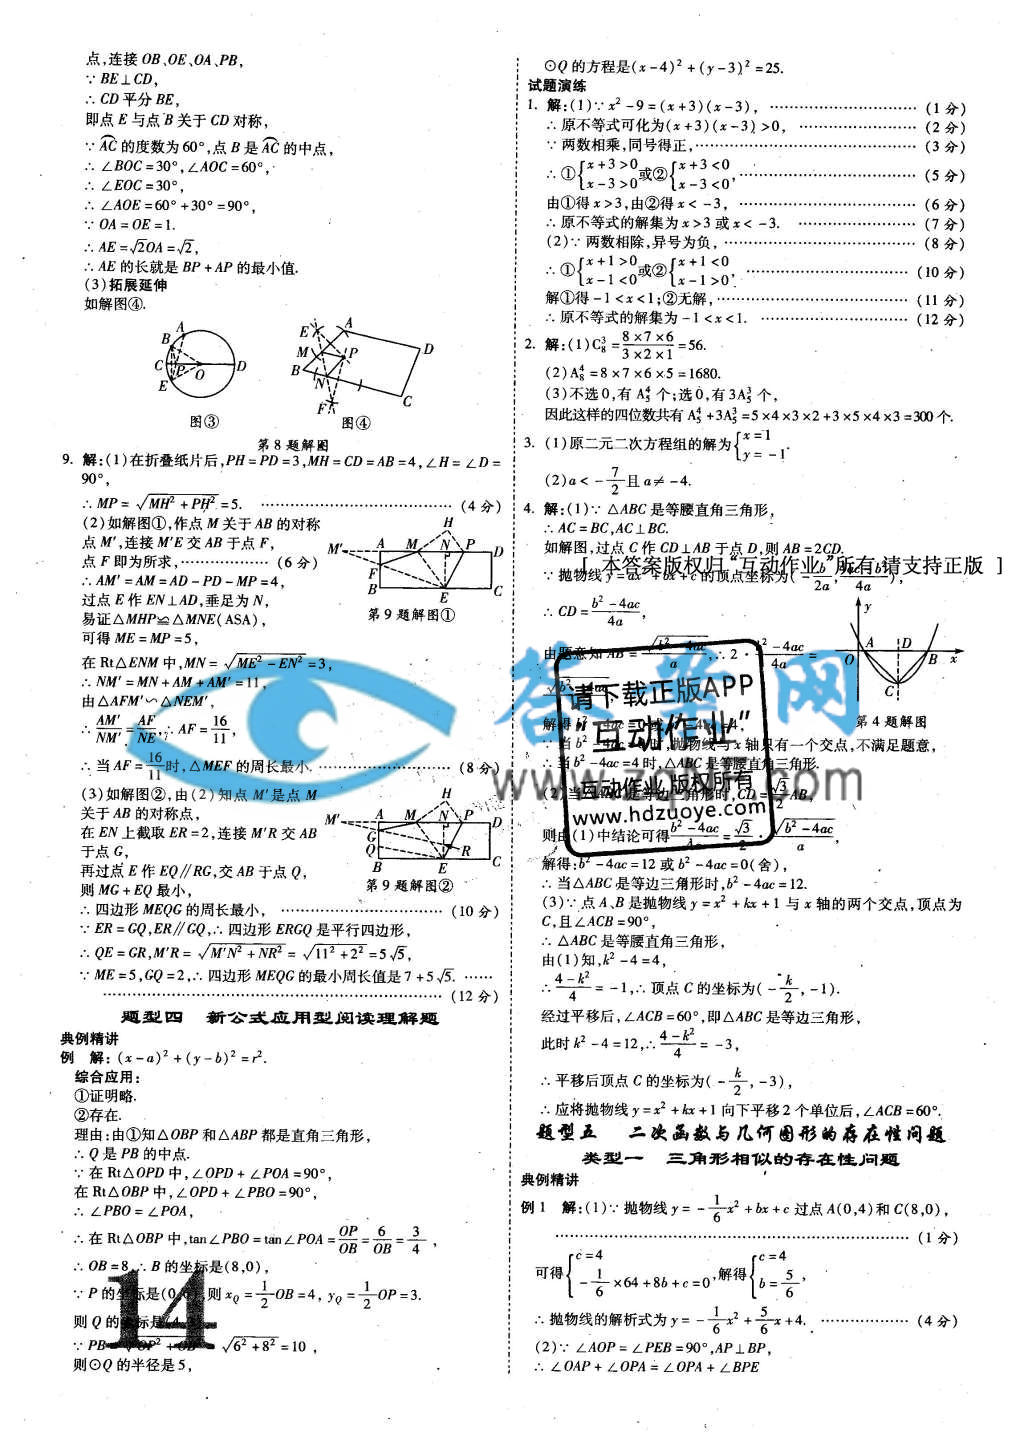 点,连接 OB、OE、OA、PB,
∵ BE⊥CD,
∴ CD 平分 BE,
即点 E 与点 B 关于 CD 对称,
∵ AC 的度数为 60°,点 B 是 AC 的中点,
∴ ∠BOC = 30°,∠AOC = 60°,
∴ ∠EOC = 30°,
∴ ∠AOE = 60° + 30° = 90°,
∵ OA = OE = 1.
∴ AE = √2OA = √2,
∴ AE 的长就是 BP + AP 的最小值.
(3)拓展延伸
如解图④.
图③ 图④
第 8 题解图
9. 解:(1)在折叠纸片后,PH = PD = 3,MH = CD = AB = 4,∠H = ∠D =
90°,
∴ MP = √(MH² + PH²) = 5. (4 分)
(2)如解图①,作点 M 关于 AB 的对称
点 M′,连接 M′E 交 AB 于点 F,
点 F 即为所求, (6 分)
∴ AM′ = AM = AD − PD − MP = 4,
过点 E 作 EN⊥AD,垂足为 N,
易证△MHP≌△MNE(ASA),
可得 ME = MP = 5,
在 Rt△ENM 中,MN = √(ME² − EN²) = 3,
∴ NM′ = MN + AM + AM′ = 11,
由△AFM′∽△NEM′,
∴ AM′/NM′ = AF/NE,∴ AF = 16/11,
∴ 当 AF = 16/11 时,△MEF 的周长最小. (8 分)
第 9 题解图①
(3)如解图②,由(2)知点 M′是点 M
关于 AB 的对称点,
在 EN 上截取 ER = 2,连接 M′R 交 AB
于点 G,
再过点 E 作 EQ∥RG,交 AB 于点 Q,
则 MG + EQ 最小,
第 9 题解图②
∴ 四边形 MEQG 的周长最小, (10 分)
∵ ER = GQ,ER∥GQ,∴ 四边形 ERGQ 是平行四边形,
∴ QE = GR,M′R = √(M′N² + NR²) = √(11² + 2²) = 5√5,
∵ ME = 5,GQ = 2,∴ 四边形 MEQG 的最小周长值是 7 + 5√5. ……
(12 分)
题型四 新公式应用型阅读理解题
典例精讲
例 解:(x − a)² + (y − b)² = r².
综合应用:
①证明略.
②存在.
理由:由①知△OBP 和△ABP 都是直角三角形,
∴ Q 是 PB 的中点.
∵ 在 Rt△OPD 中,∠OPD + ∠POA = 90°,
在 Rt△OBP 中,∠OPD + ∠PBO = 90°,
∴ ∠PBO = ∠POA,
∴ 在 Rt△OBP 中,tan∠PBO = tan∠POA = OP/OB = 6/OB = 3/4,
∴ OB = 8,∴ B 的坐标是(8,0),
∵ P 的坐标是(0,6),则 xQ = 1/2 OB = 4,yQ = 1/2 OP = 3.
则 Q 的坐标是(4,3),
∵ PB = √(OP² + OB²) = √(6² + 8²) = 10,
则⊙Q 的半径是 5,
14
⊙Q 的方程是(x − 4)² + (y − 3)² = 25.
试题演练
1. 解:(1)∵ x² − 9 = (x + 3)(x − 3), (1 分)
∴ 原不等式可化为(x + 3)(x − 3) > 0, (2 分)
∵ 两数相乘,同号得正, (3 分)
∴ ①{x + 3 > 0 x − 3 > 0 或②{x + 3 < 0 x − 3 < 0, (5 分)
由①得 x > 3,由②得 x < −3, (6 分)
∴ 原不等式的解集为 x > 3 或 x < −3. (7 分)
(2)∵ 两数相除,异号为负, (8 分)
∴ ①{x + 1 > 0 x − 1 < 0 或②{x + 1 < 0 x − 1 > 0. (10 分)
解①得 −1 < x < 1;②无解, (11 分)
∴ 原不等式的解集为 −1 < x < 1. (12 分)
2. 解:(1)C₈³ = (8×7×6)/(3×2×1) = 56.
(2)A₈⁴ = 8×7×6×5 = 1680.
(3)不选 0,有 A₅⁴ 个;选 0,有 3A₅³ 个,
因此这样的四位数共有 A₅⁴ + 3A₅³ = 5×4×3×2 + 3×5×4×3 = 300 个.
3. (1)原二元二次方程组的解为{x = 1 y = −1.
(2)a < −7/2 且 a ≠ −4.
4. 解:(1)∵ △ABC 是等腰直角三角形,
∴ AC = BC,AC⊥BC.
如解图,过点 C 作 CD⊥AB 于点 D,则 AB = 2CD.
[ 本答案版权归“互动作业”所有,请支持正版 ]
∵ 抛物线 y = ax² + bx + c 的顶点坐标为(−b/2a, (4ac − b²)/4a),
∴ CD = (b² − 4ac)/4a,
由题意知 AB = √(b² − 4ac)/a,∴ 2·(b² − 4ac)/4a =
√(b² − 4ac)/a,
解得 b² − 4ac = 0 或 b² − 4ac = 4,
第 4 题解图
∵ 当 b² − 4ac = 0 时,抛物线与 x 轴只有一个交点,不满足题意,
∴ 当 b² − 4ac = 4 时,△ABC 是等腰直角三角形.
(2)当△ABC 是等边三角形时,CD = √3/2 AB,
则由(1)中结论可得(b² − 4ac)/4a = √3/2 · √(b² − 4ac)/a,
解得:b² − 4ac = 12 或 b² − 4ac = 0(舍),
∴ 当△ABC 是等边三角形时,b² − 4ac = 12.
(3)∵ 点 A、B 是抛物线 y = x² + kx + 1 与 x 轴的两个交点,顶点为
C,且∠ACB = 90°,
∴ △ABC 是等腰直角三角形,
由(1)知,k² − 4 = 4,
∴ (4 − k²)/4 = −1,∴ 顶点 C 的坐标为(−k/2, −1).
经过平移后,∠ACB = 60°,即△ABC 是等边三角形,
此时 k² − 4 = 12,∴ (4 − k²)/4 = −3,
∴ 平移后顶点 C 的坐标为(−k/2, −3),
∴ 应将抛物线 y = x² + kx + 1 向下平移 2 个单位后,∠ACB = 60°.
题型五 二次函数与几何图形的存在性问题
类型一 三角形相似的存在性问题
典例精讲
例 1 解:(1)∵ 抛物线 y = −1/6 x² + bx + c 过点 A(0,4)和 C(8,0),
(1 分)
可得{c = 4 −1/6 × 64 + 8b + c = 0,解得{c = 4 b = 5/6,
∴ 抛物线的解析式为 y = −1/6 x² + 5/6 x + 4. (4 分)
(2)∵ ∠AOP = ∠PEB = 90°,AP⊥BP,
∴ ∠OAP + ∠OPA = ∠OPA + ∠BPE
请下载正版APP
“互动作业”
互动作业 版权所有
www.hdzuoye.com